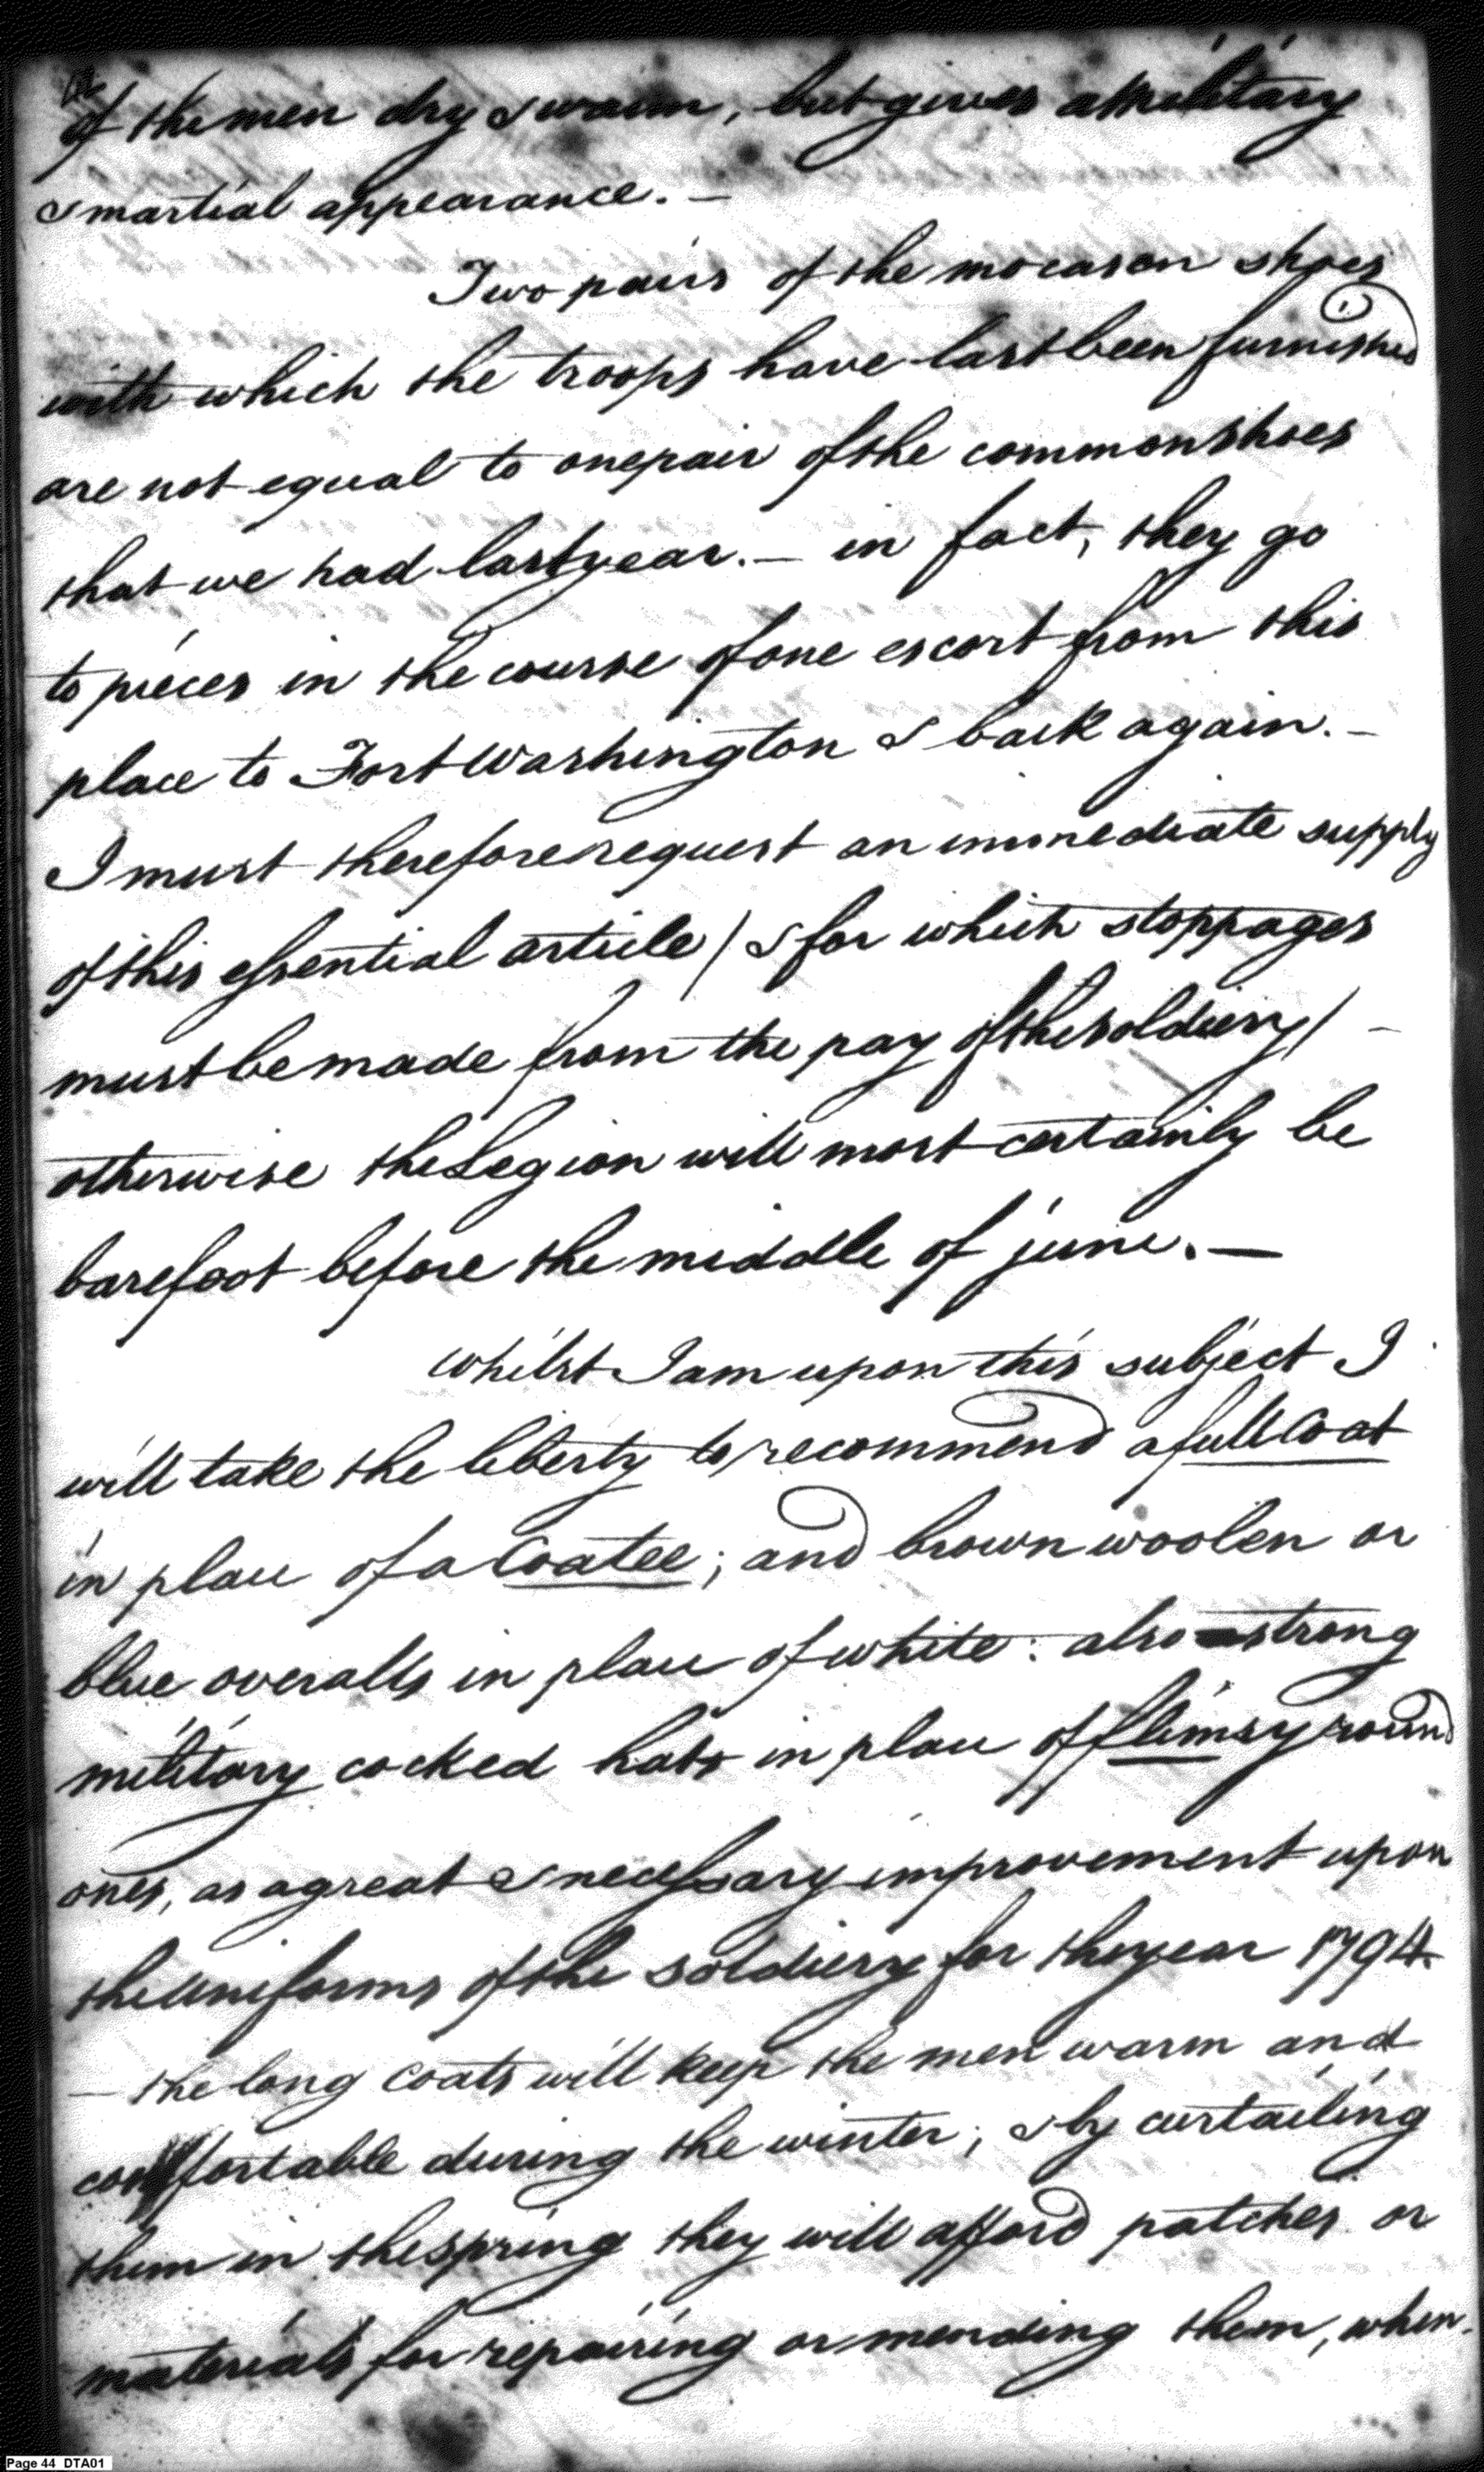 of the men dry & warm, but gives a Military
& martial appearance. —
Two pairs of the mocason shoes
with which the troops have last been furnished
are not equal to one pair of the common shoes
that we had last year. — in fact, they go
to pieces in the course of one escort from this
place to Fort Washington & back again. —
I must therefore request an immediate supply
of this essential article / & for which stoppages
must be made from the pay of the soldiery / —
otherwise the Legion will most certainly be
barefoot before the middle of june. —
Whilst I am upon this subject I
will take the liberty to recommend a full Coat
in place of a Coatee; and brown woolen or
blue overalls in place of white: also strong
military cocked hats in place of flimsy round
ones, as a great & necessary improvement upon
the uniforms of the soldiery for the year 1794.
— the long coats will keep the men warm and
comfortable during the winter; & by curtailing
them in the spring they will afford patches or
materials for repairing or mending them, when
Page 44 DTA01